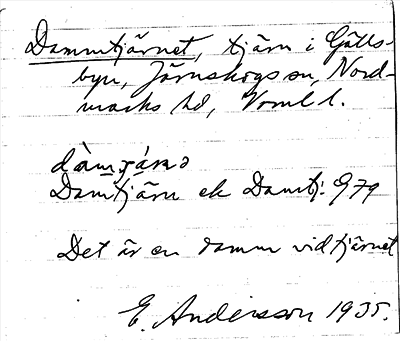 Dammtjärnet, tjärn i Gälls-
byn, Järnskogs sn, Nord-
marks hd, Vrml l.
Damtjärn ek Damtj. G79
Det är en damm vid tjärnet
E. Andersson 1935.